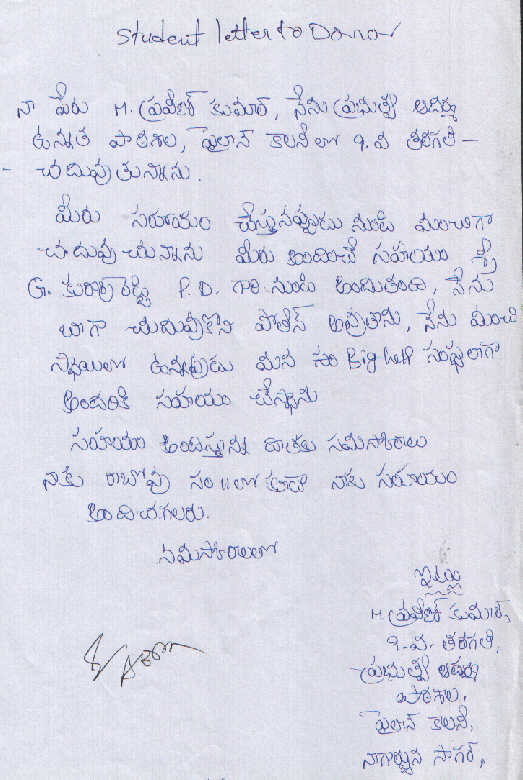 Student letter to Donor
నా పేరు M. ప్రవీణ్ కుమార్, నేను ప్రభుత్వ ఆదర్శ
ఉన్నత పాఠశాల, పైలాన్ కాలనీలో 9.వ తరగతి -
- చదువుతున్నాను.
మీరు సహాయం చేస్తునప్పుడు నుండి మంచిగా
చదువుచున్నాను మీరు అందించే సహయం శ్రీ
G. P.D. గారి నుండి అందుతుంది, నేను
బాగా చదువుకొని పోలీస్ అవుతాను, నేను మంచి
స్థాయిలో ఉన్నప్పుడు మన Big help సంస్థలాగా
అందరికి సహయం చేస్తాను
సహయం అందిస్తున్న దాతకు నమస్కారాలు
నాకు రాబోవు సం॥లో కూడా నాకు సహాయం
అందించగలరు.
నమస్కారాలతో
ఇట్లు
M. ప్రవీణ్ కుమార్,
9.వ. తరగతి,
ప్రభుత్వ ఆదర్శ
పాఠశాల,
పైలాన్ కాలనీ,
నాగార్జున సాగర్,